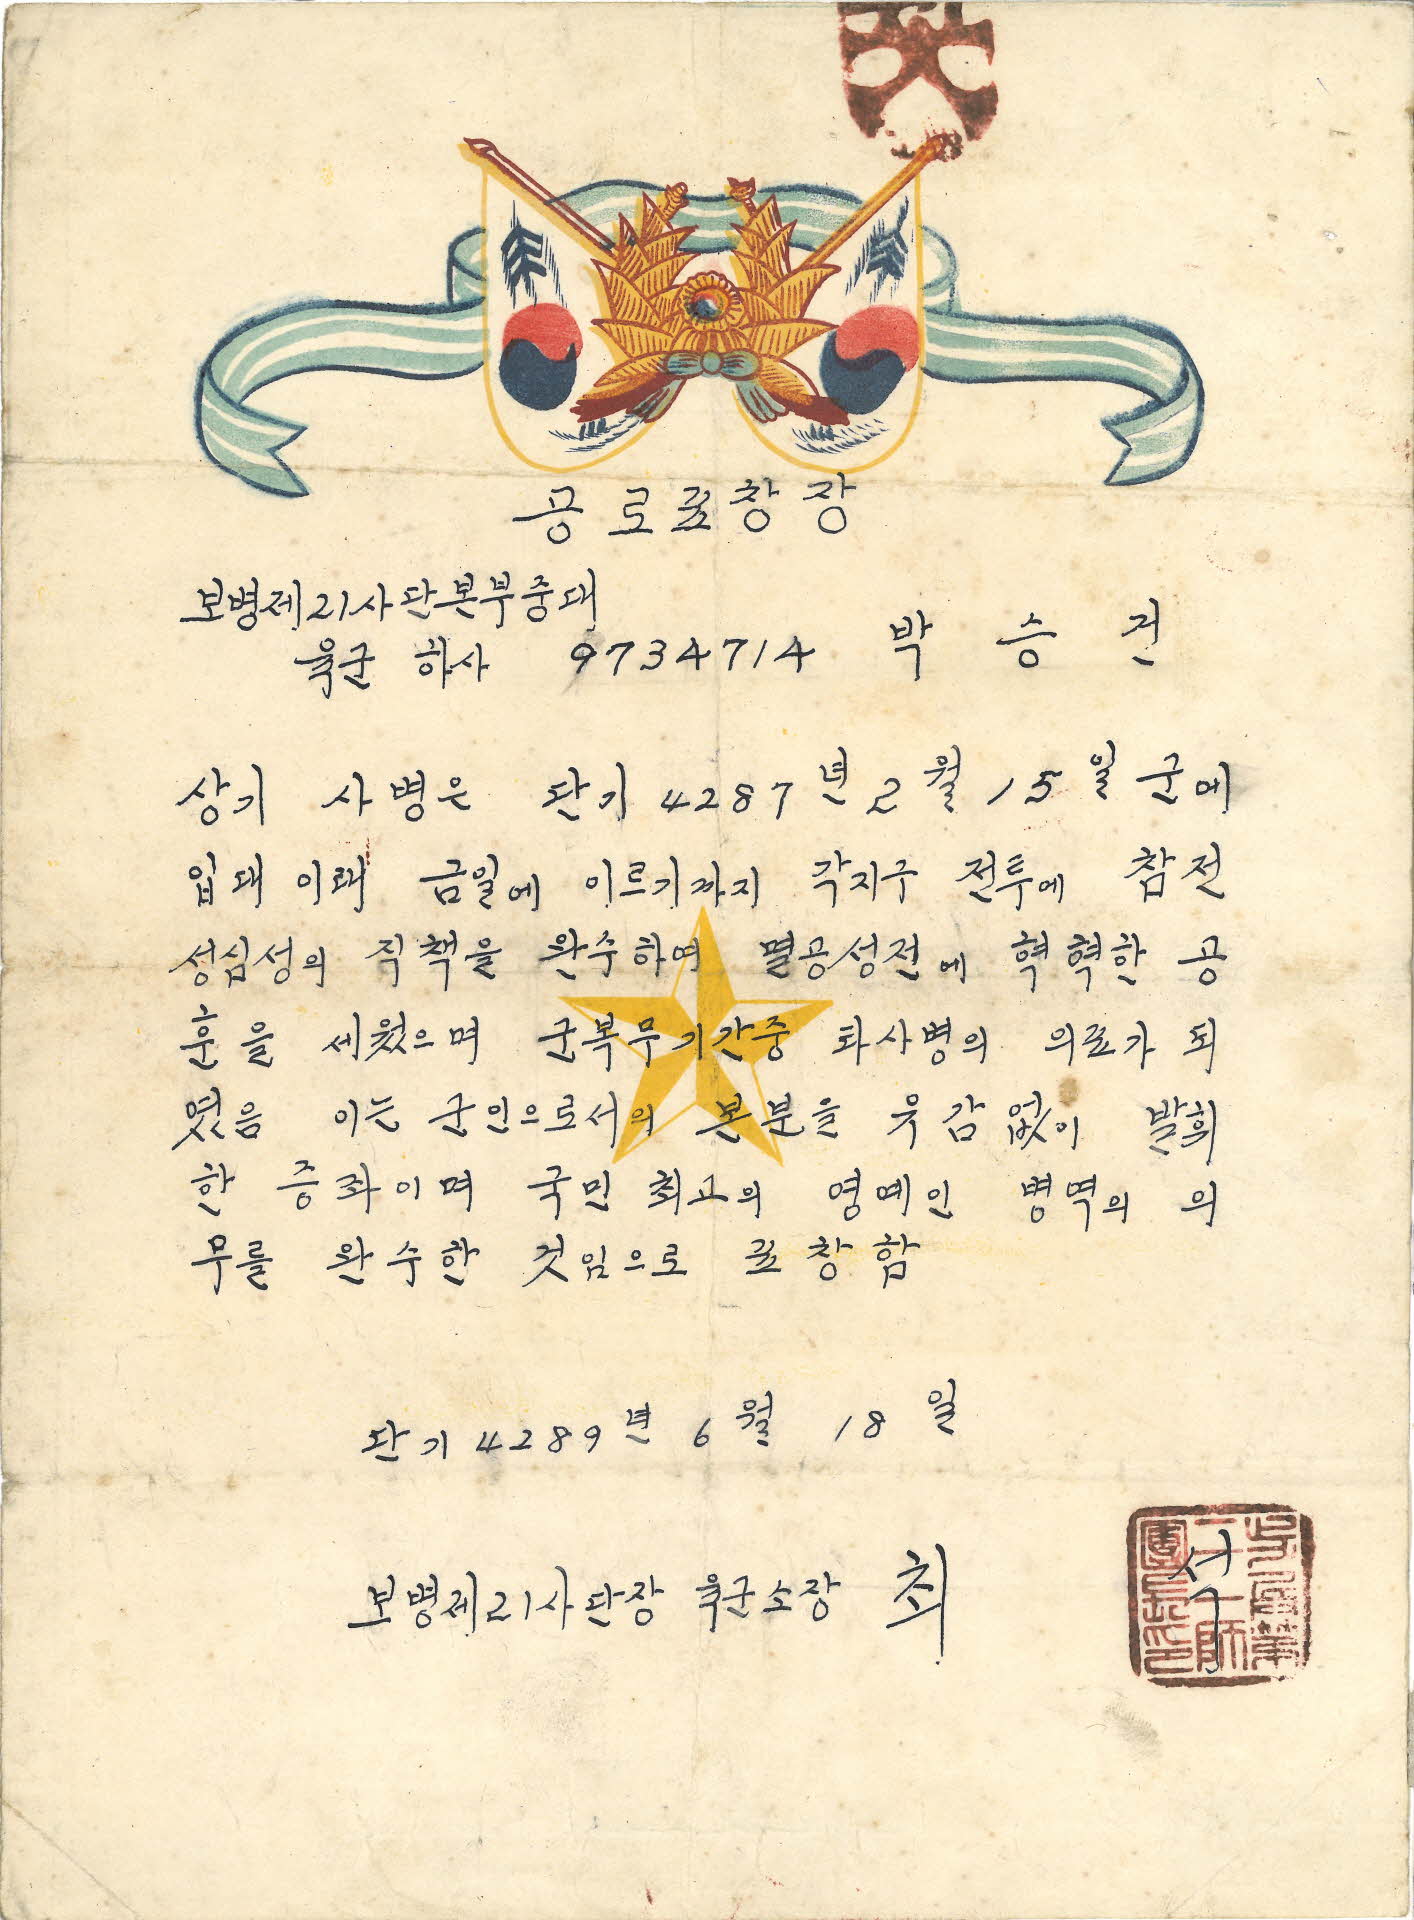 공로표창장
보병제21사단본부중대
육군 하사 9734714 박 승 진
상기 사병은 단기 4287년 2월 15일 군에
입대 이래 금일에 이르기까지 각지구 전투에 참전
성심성의 직책을 완수하며 멸공성전에 혁혁한 공
훈을 세웠으며 군복무기간중 타사병의 의표가 되
였음 이는 군인으로서의 본분을 유감없이 발휘
한 증좌이며 국민 최고의 영예인 병역의 의
무를 완수한 것임으로 표창함
단기 4289년 6월 18일
보병제21사단장 육군소장 최